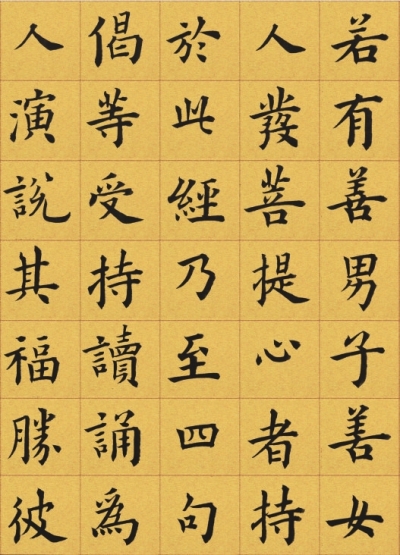 若有善男子善女
人發菩提心者持
於此經乃至四句
偈等受持讀誦為
人演說其福勝彼